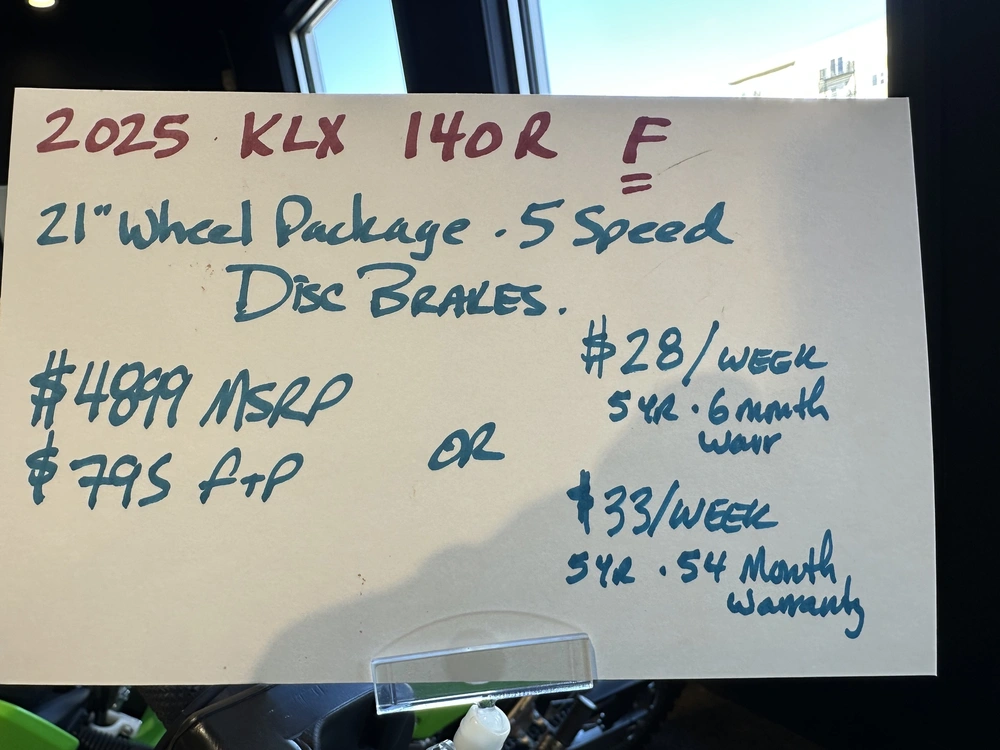 2025 KLX 140R F
21" Wheel Package . 5 Speed
Disc BRAKES.
$4899 MSRP
$795 f+P
OR
$28/WEEK
5 YR . 6 month
warr
$33/WEEK
5 YR . 54 Month
Warranty